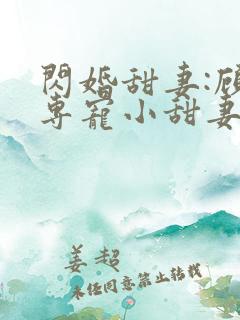 閃婚甜妻:顧
專寵小甜妻
姜超
未任同意禁止转载